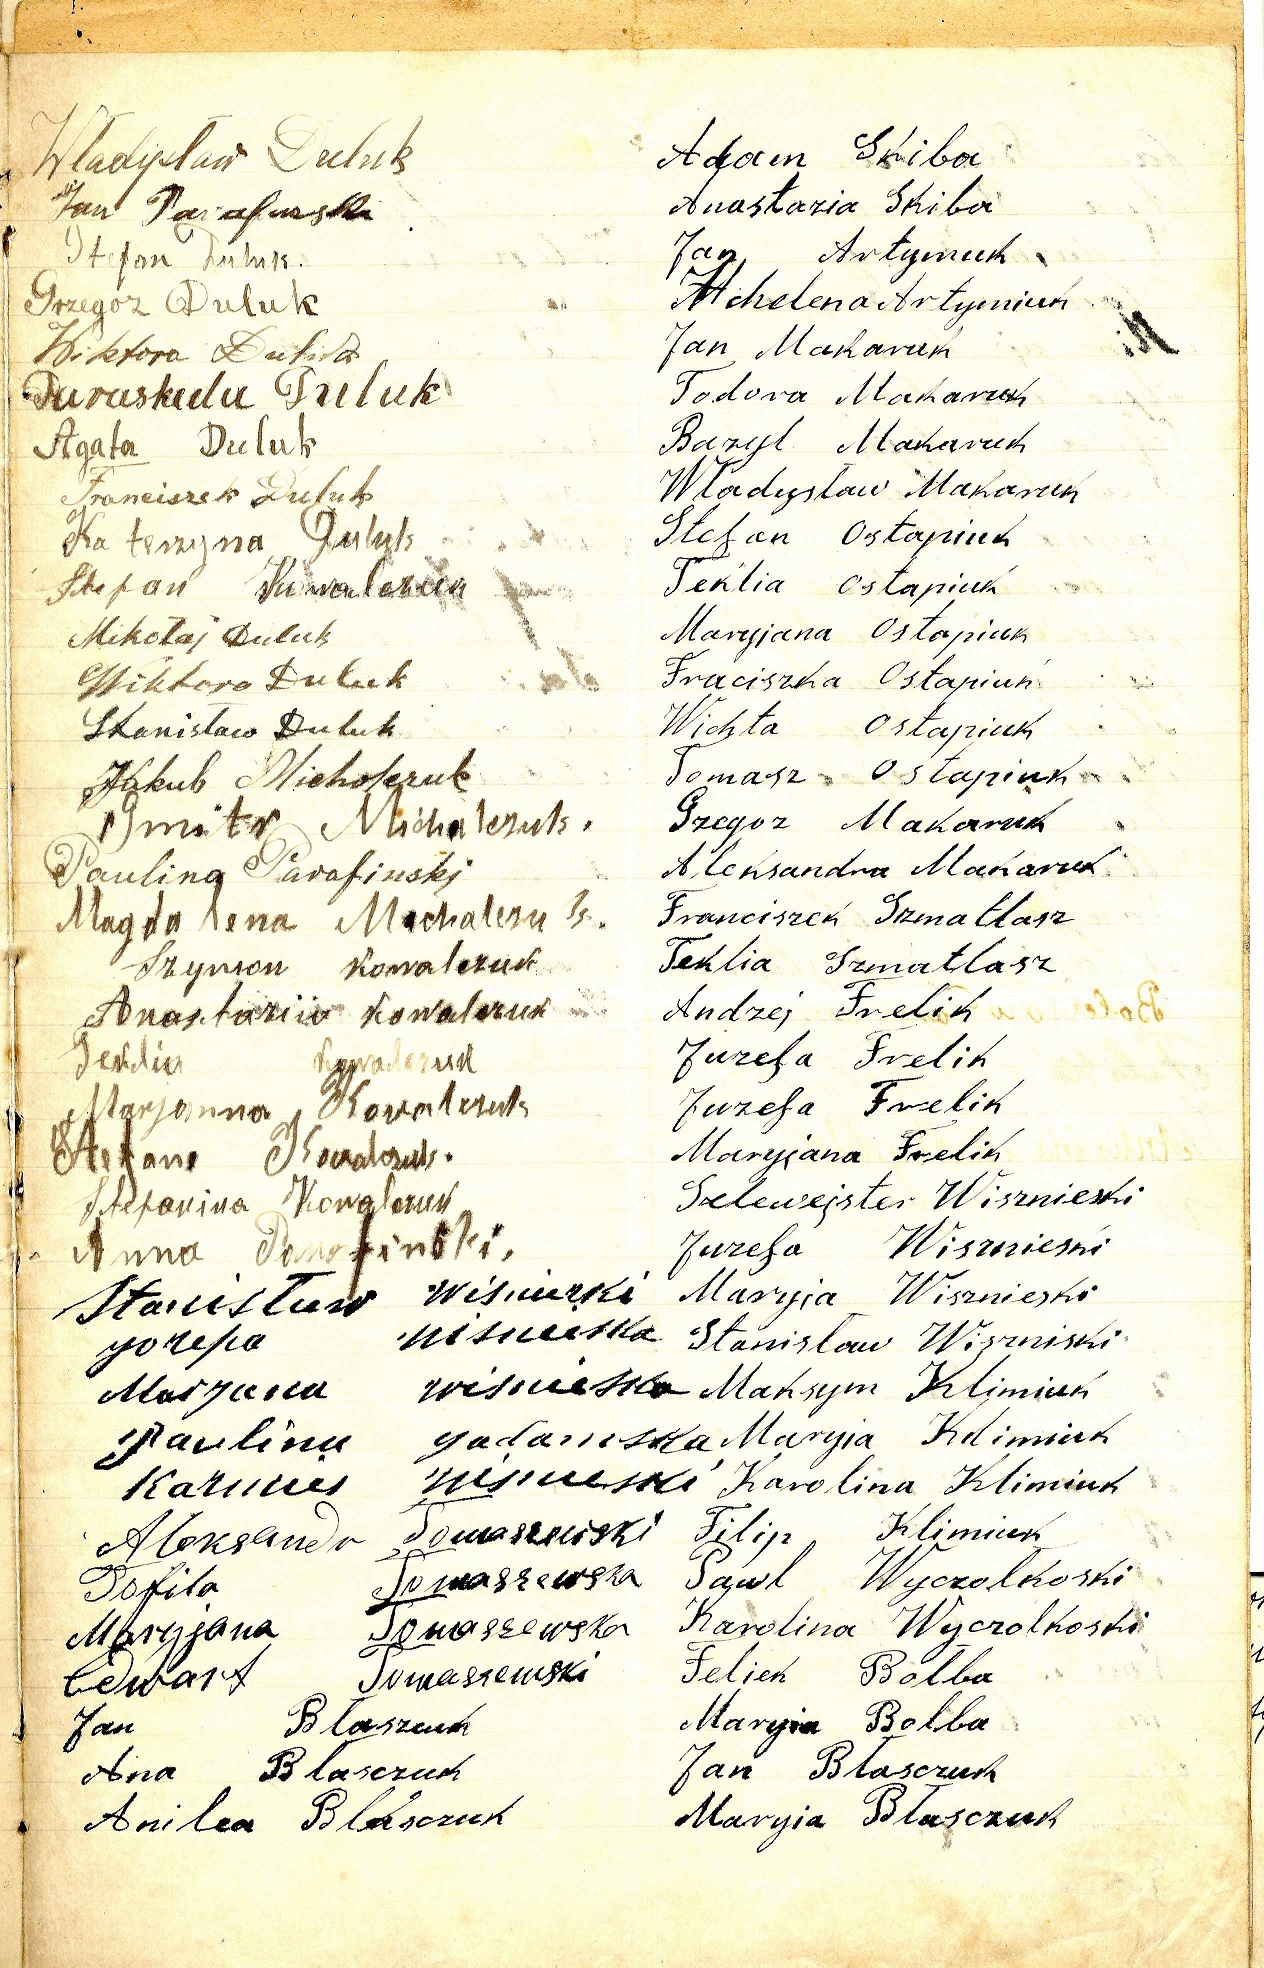 Władysław Duluk
Jan Parafinski
Stefan Duluk.
Grzegoz Duluk
Wiktora Duluk
Duluk
Agata Duluk
Franciszek Duluk
Katerzyna Duluk
Stefan Kowalczuk
Mikołaj Duluk
Wiktoro Duluk
Stanisław Duluk
Jakub Michalczuk
Dmitr Michalczuk.
Paulina Parafinskj
Magdalena Machalczuk.
Szymon Kowalczuk
Anastaziia Kowalczuk
Teklia Kowalczuk
Marjanna Kowalczuk
Stefane Kowalczuk.
Stefanina Kowalczuk
Anna Parafinski.
Stanisław Wisnieski
yozefa wisnieska
Marjana wisnieska
Paulina yadamska
Kazmies wisnieski
Aleksandr Tomaszewski
Tofila Tomaszewska
Maryjana Tomaszewska
Edwart Tomaszewski
Jan Błaszcuk
Ana Błasczuk
Anilea Błasczuk
Adam Skiba
Anastazia Skiba
Jan Artymuk
Mhelena Artymiuk
Jan Makaruk
Todora Makaruk
Bazyl Makaruk
Władysław Makaruk
Stefan Ostapiuk
Teklia Ostapiuk
Maryjana Ostapiuk
Fraciszka Ostapiuk
Wichta Ostapiuk
Tomasz Ostapiuk
Gzegoz Makaruk
Aleksandra Makaruk
Franciszek Szmatłasz
Teklia Szmatlasz
Andzej Frelik
Juzefa Frelik
Juzefa Frelik
Maryjana Frelik
Szlewejster Wisznieski
Juzefa Wisznieski
Maryja Wisznieski
Stanisław Wiszniski
Maksym Klimiuk
Maryja Klimiuk
Karolina Klimiuk
Filip Klimiuk
Pawl Wyczolkoski
Karolina Wyczolkoski
Feliek Bołba
Maryja Bołba
Jan Błasczuk
Maryja Błasczuk